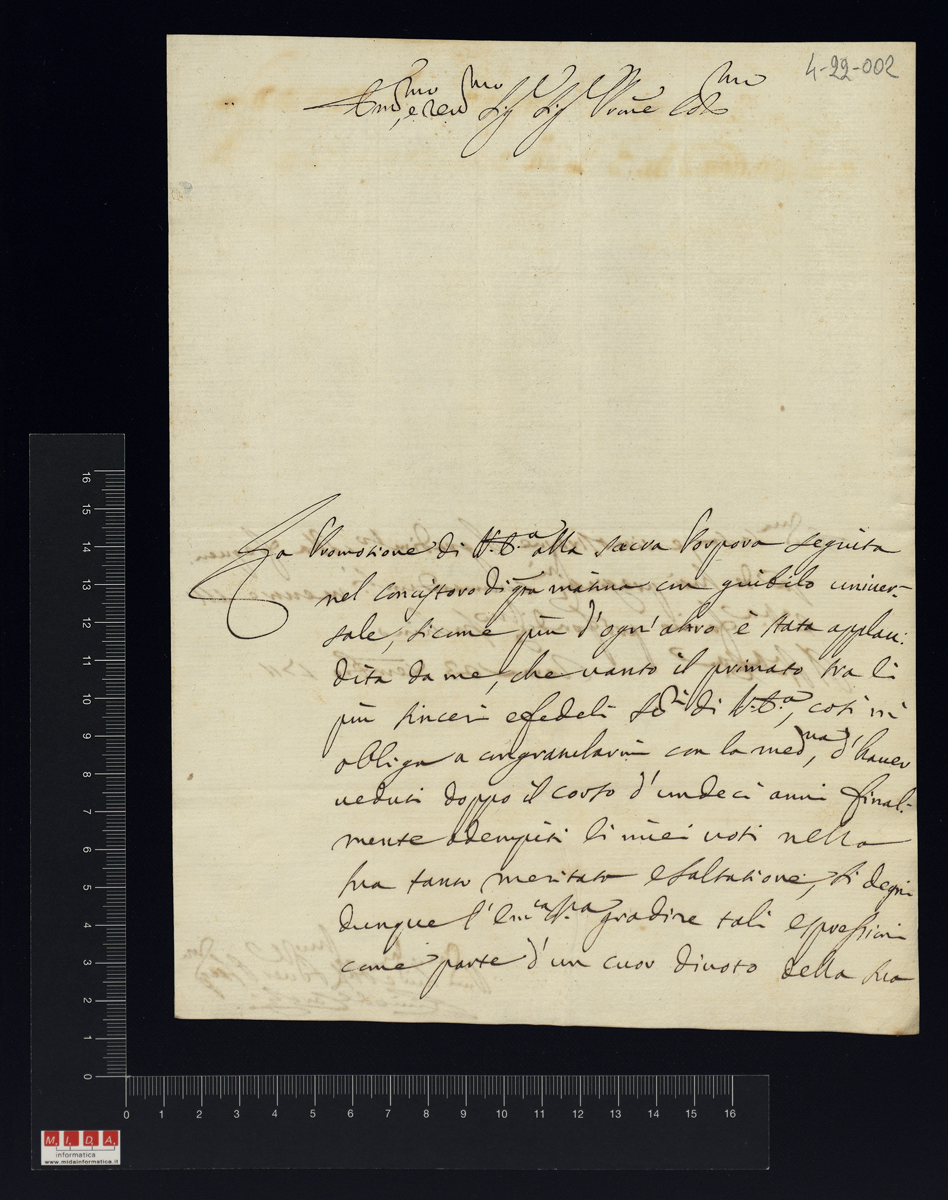 4-22-002
Em.mo, e Rev.mo Sig.r Sig.r Prone Col.mo
La Promotione di V. E.a alla sacra Porpora seguita
nel concistoro di q.ta matina con giubilo univer-
sale, sicome più d'ogn'altro è stata applau-
dita da me, che vanto il primato tra li
più sinceri e fedeli Se.ri di V. E.a, così mi
obliga a congratularmi con la med.ma, d'haver
veduti doppo il corso d'undeci anni final-
mente adempiti li miei voti nella
sua tanto meritata esaltatione, si degni
dunque l'Em.za S.a gradire tali espressioni
come parte d'un cuor divoto della sua
16
15
14
13
12
11
10
9
8
7
6
5
4
3
2
1
0
0 1 2 3 4 5 6 7 8 9 10 11 12 13 14 15 16
M. I. D. A.
informatica
www.midainformatica.it